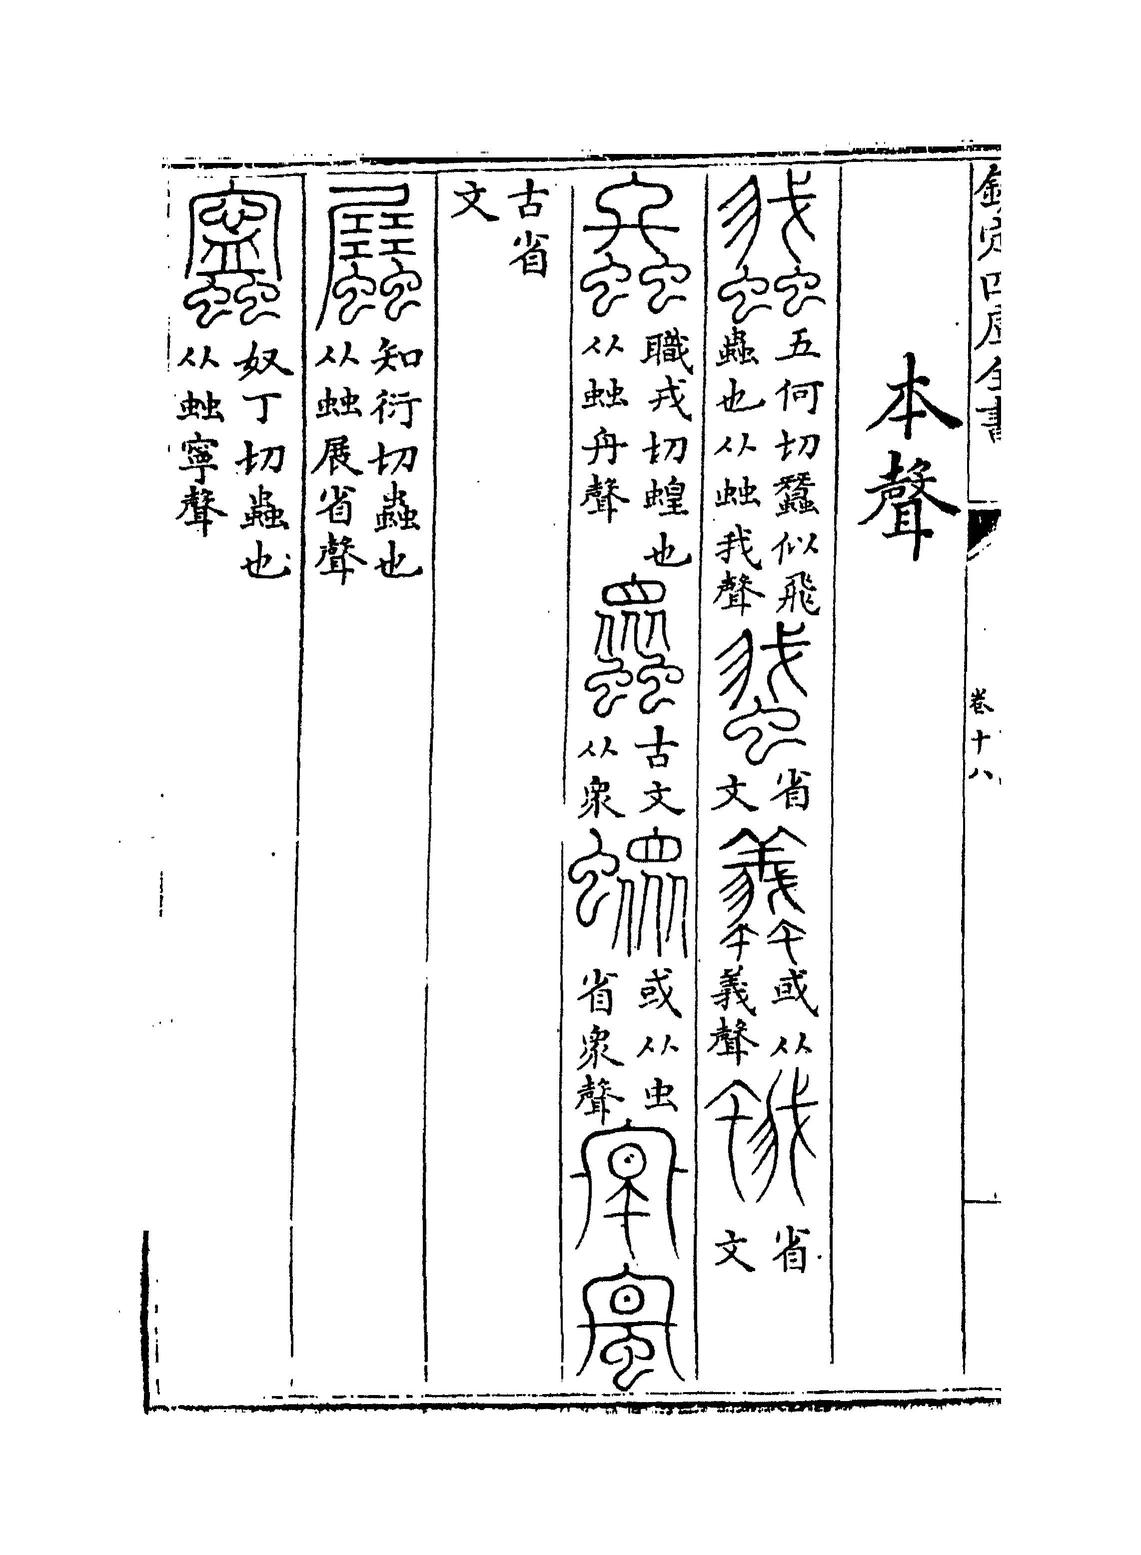 欽定四庫全書
卷十八
本聲
五何切蠶似飛
蟲也从䖵我聲
省
文
或从
義聲
省
文
職戎切蝗也
从䖵舟聲
古文
从衆
或从虫
省衆聲
古省
文
知衍切蟲也
从䖵展省聲
奴丁切蟲也
从䖵寧聲